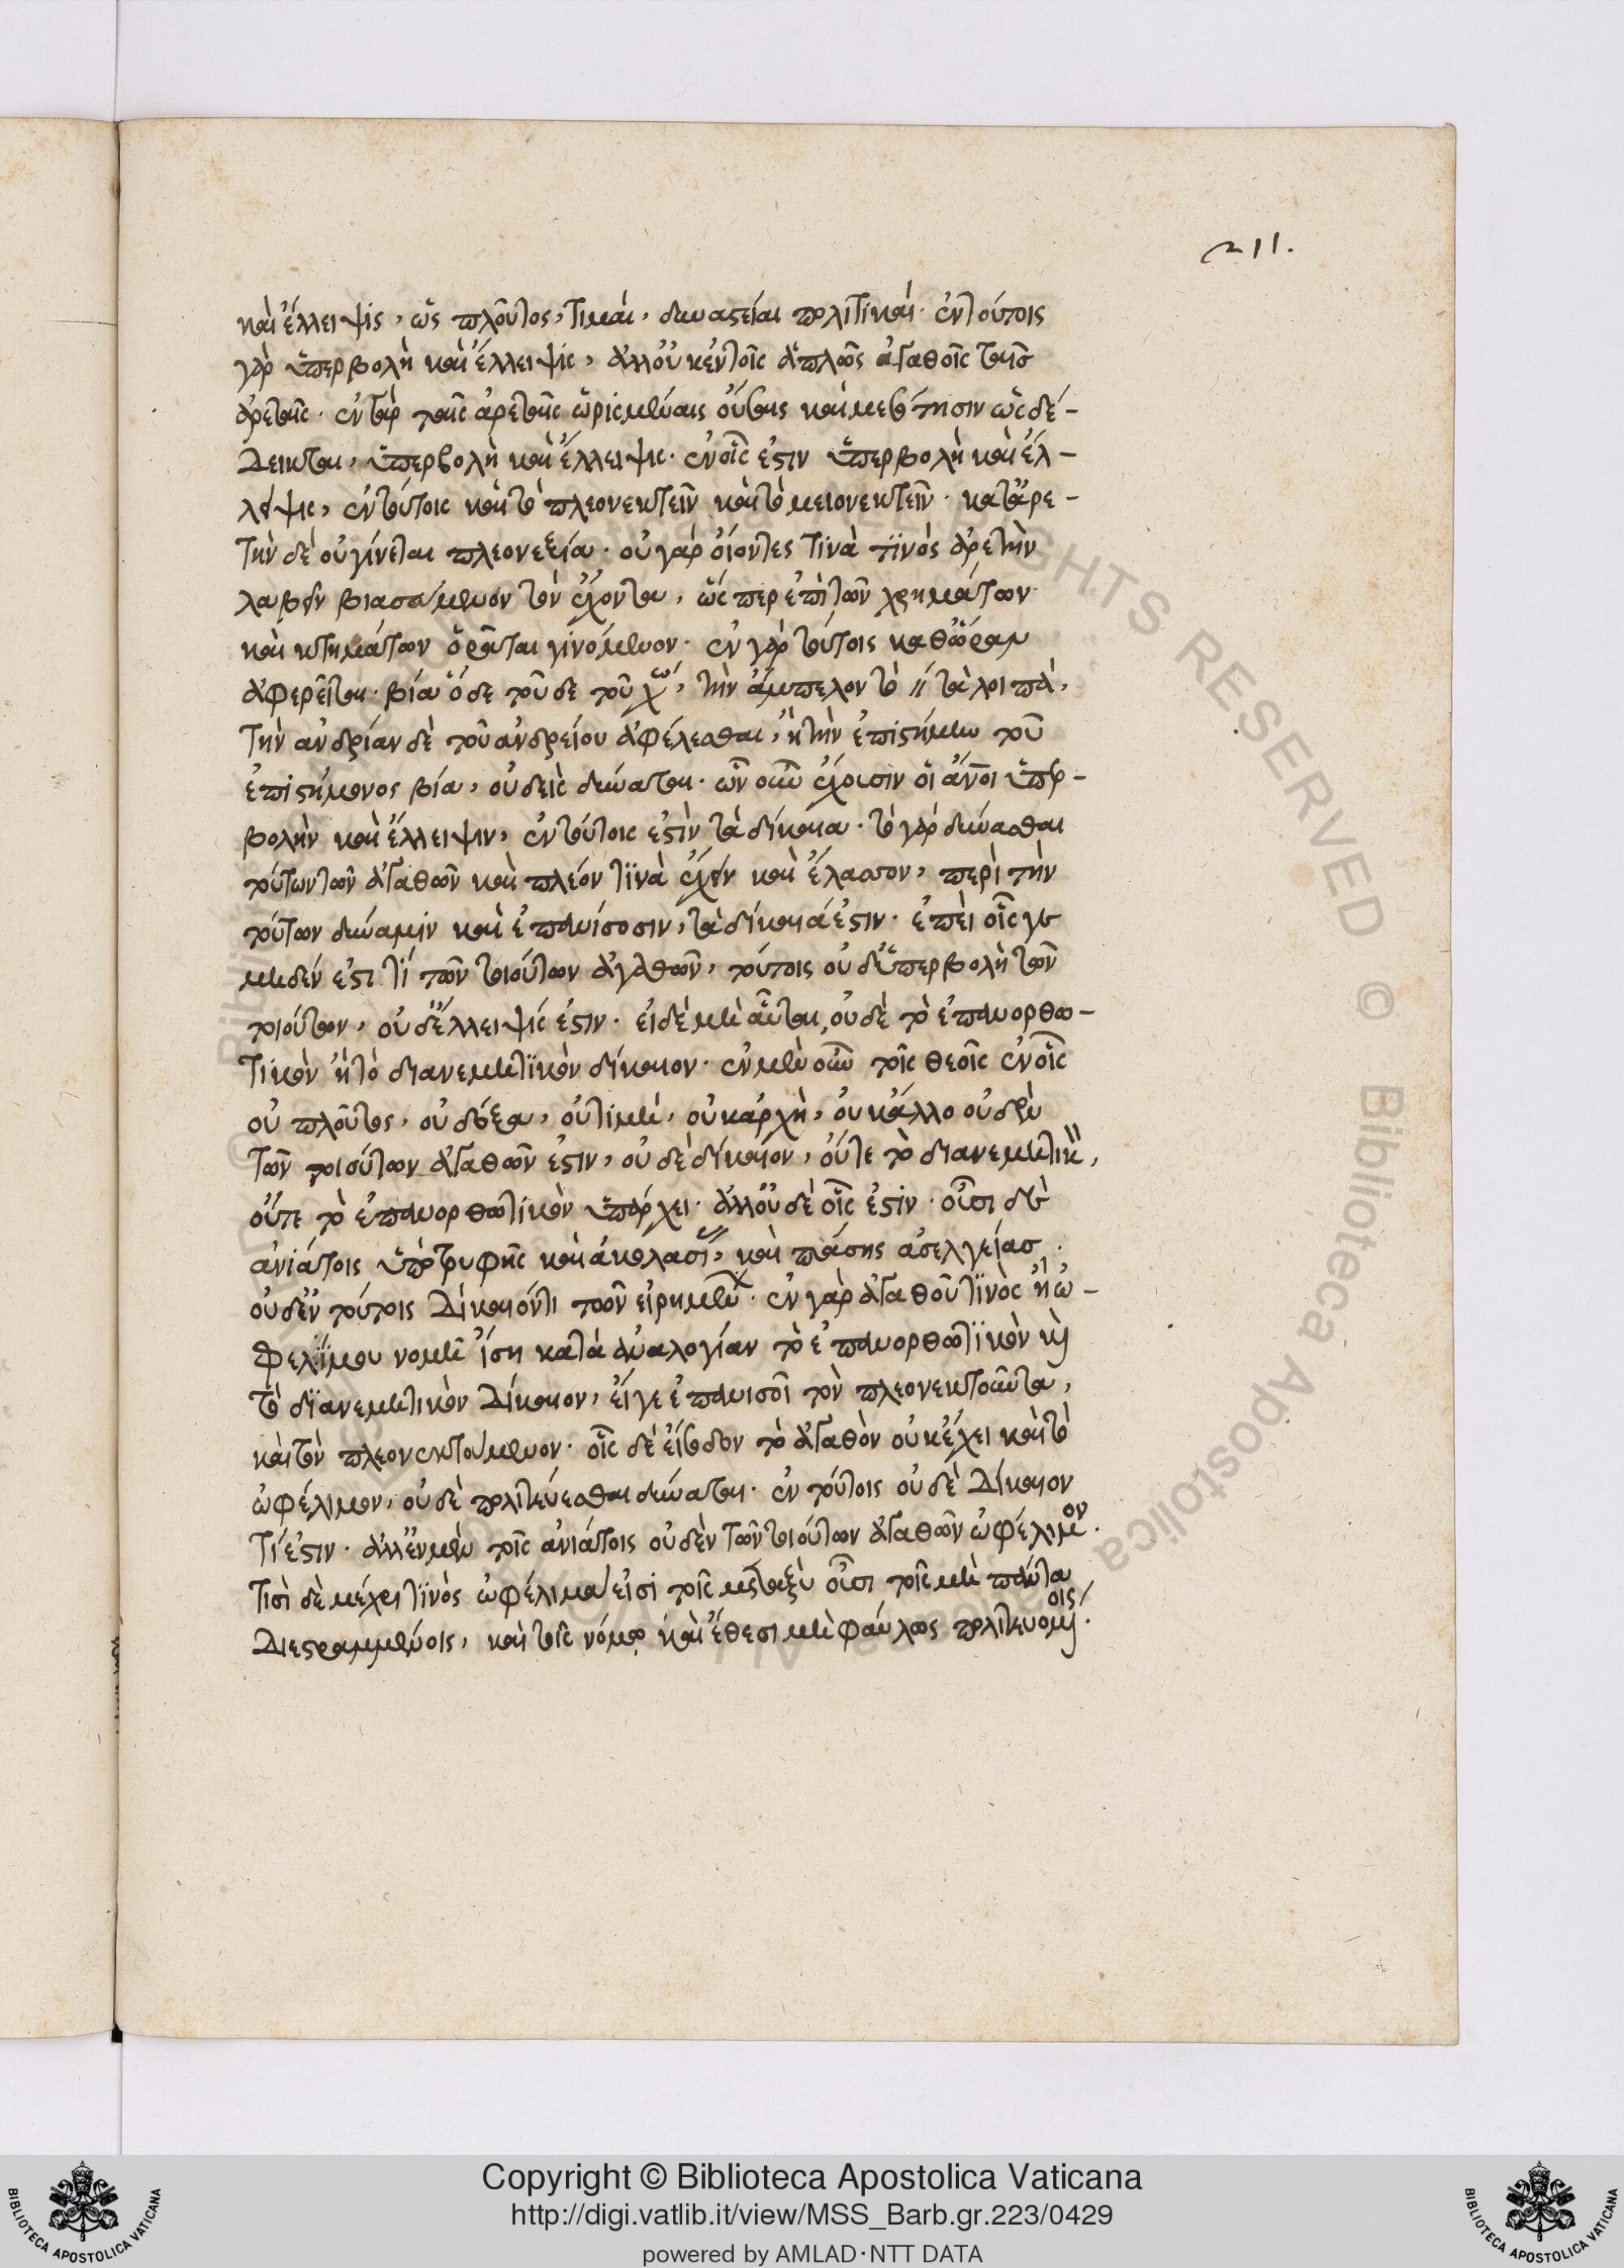 211.
καὶ ἔλλειψις, ὡς πλοῦτος, τιμαὶ, δυναστεῖαι πολιτικαί. ἐν τούτοις
γὰρ ὑπερβολὴ καὶ ἔλλειψις, ἀλλ' οὐκ ἐν τοῖς ἁπλῶς ἀγαθοῖς ταῖς
ἀρεταῖς. ἐν γὰρ ταῖς ἀρεταῖς ὡρισμέναις οὔσαις καὶ μεσότησιν ὡς δέ-
δεικται, ὑπερβολὴ καὶ ἔλλειψις. ἐν οἷς ἐστιν ὑπερβολὴ καὶ ἔλ-
λειψις, ἐν τούτοις καὶ τὸ πλεονεκτεῖν καὶ τὸ μειονεκτεῖν. κατ' ἀρε-
τὴν δὲ οὐ γίνεται πλεονεξία. οὐ γὰρ οἷόντες τινὰ τινὸς ἀρετὴν
λαβεῖν βιασάμενον τὸν ἔχοντα, ὥσπερ ἐπὶ τῶν χρημάτων
καὶ κτημάτων ὁρᾶται γινόμενον. ἐν γὰρ τούτοις καθ' ὥραν
ἀφερεῖται βία ὅδε τοῦδε τοῦ τὴν ἄμπελον τὸ τὰ λοιπά,
τὴν ἀνδρίαν δὲ τοῦ ἀνδρείου ἀφέλεσθαι, ἢ τὴν ἐπιστήμην τοῦ
ἐπιστήμονος βία, οὐδεὶς δύναται. ὧν οὖν ἔχουσιν οἱ ἄνοι ὑπερ-
βολὴν καὶ ἔλλειψιν, ἐν τούτοις ἐστὶν τὰ δίκαια. τὸ γὰρ δύνασθαι
τούτων τῶν ἀγαθῶν καὶ πλέον τινὰ ἔχειν καὶ ἔλασσον, περὶ τὴν
τούτων δύναμιν καὶ ἐπανίσωσιν, τὰ δίκαιά ἐστιν. ἐπεὶ οἷς γε
μηδέν ἐστί τι τῶν τοιούτων ἀγαθῶν, τούτοις οὐδ' ὑπερβολὴ τῶν
τοιούτων, οὐδ' ἔλλειψίς ἐστιν. εἰ δὲ μὴ αὗται, οὐδὲ τὸ ἐπανορθω-
τικὸν ἢ τὸ διανεμητικὸν δίκαιον. ἐν μὲν οὖν τοῖς θεοῖς ἐν οἷς
οὐ πλοῦτος, οὐ δόξα, οὐ τιμὴ, οὐκ ἀρχὴ, οὐκ ἄλλο οὐδὲν
τῶν τοιούτων ἀγαθῶν ἐστιν, οὐδὲ δίκαιον, οὔτε τὸ διανεμητικ,
οὔτε τὸ ἐπανορθωτικὸν ὑπάρχει. ἀλλ' οὐδὲ οἷς ἐστίν. οὖσι δὲ
ἀνιάτοις ὑπὸ τρυφῆς καὶ ἀκολασί, καὶ πάσης ἀσελγείας.
οὐδὲν τούτοις δίκαιόν τι τῶν εἰρημέν. ἐν γὰρ ἀγαθοῦ τινὸς ἢ ὠ-
φελίμου νομῇ ἴση κατὰ ἀναλογίαν τὸ ἐπανορθωτικὸν καὶ
τὸ διανεμητικὸν δίκαιον, εἴγε ἐπανισοῖ τὸν πλεονεκτοῦντα,
καὶ τὸν πλεονεκτούμενον. οἷς δὲ τὸ ἀγαθὸν οὐκ ἔχει καὶ τὸ
ὠφέλιμον, οὐδὲ πολιτεύεσθαι δύναται. ἐν τούτοις οὐδὲ δίκαιον
τί ἐστιν. ἀλλ' ἐν μὲν τοῖς ἀνιάτοις οὐδὲν τῶν τοιούτων ἀγαθῶν ὠφέλιμον.
τισὶ δὲ μέχρι τινὸς ὠφέλιμα εἰσὶ τοῖς μεταξὺ οὖσι τοῖς μὴ πάντα
διεστραμμένοις, καὶ τοῖς νόμῳ καὶ ἔθεσι μὴ φαύλως πολιτευομένοις.
Copyright © Biblioteca Apostolica Vaticana
http://digi.vatlib.it/view/MSS_Barb.gr.223/0429
powered by AMLAD·NTT DATA